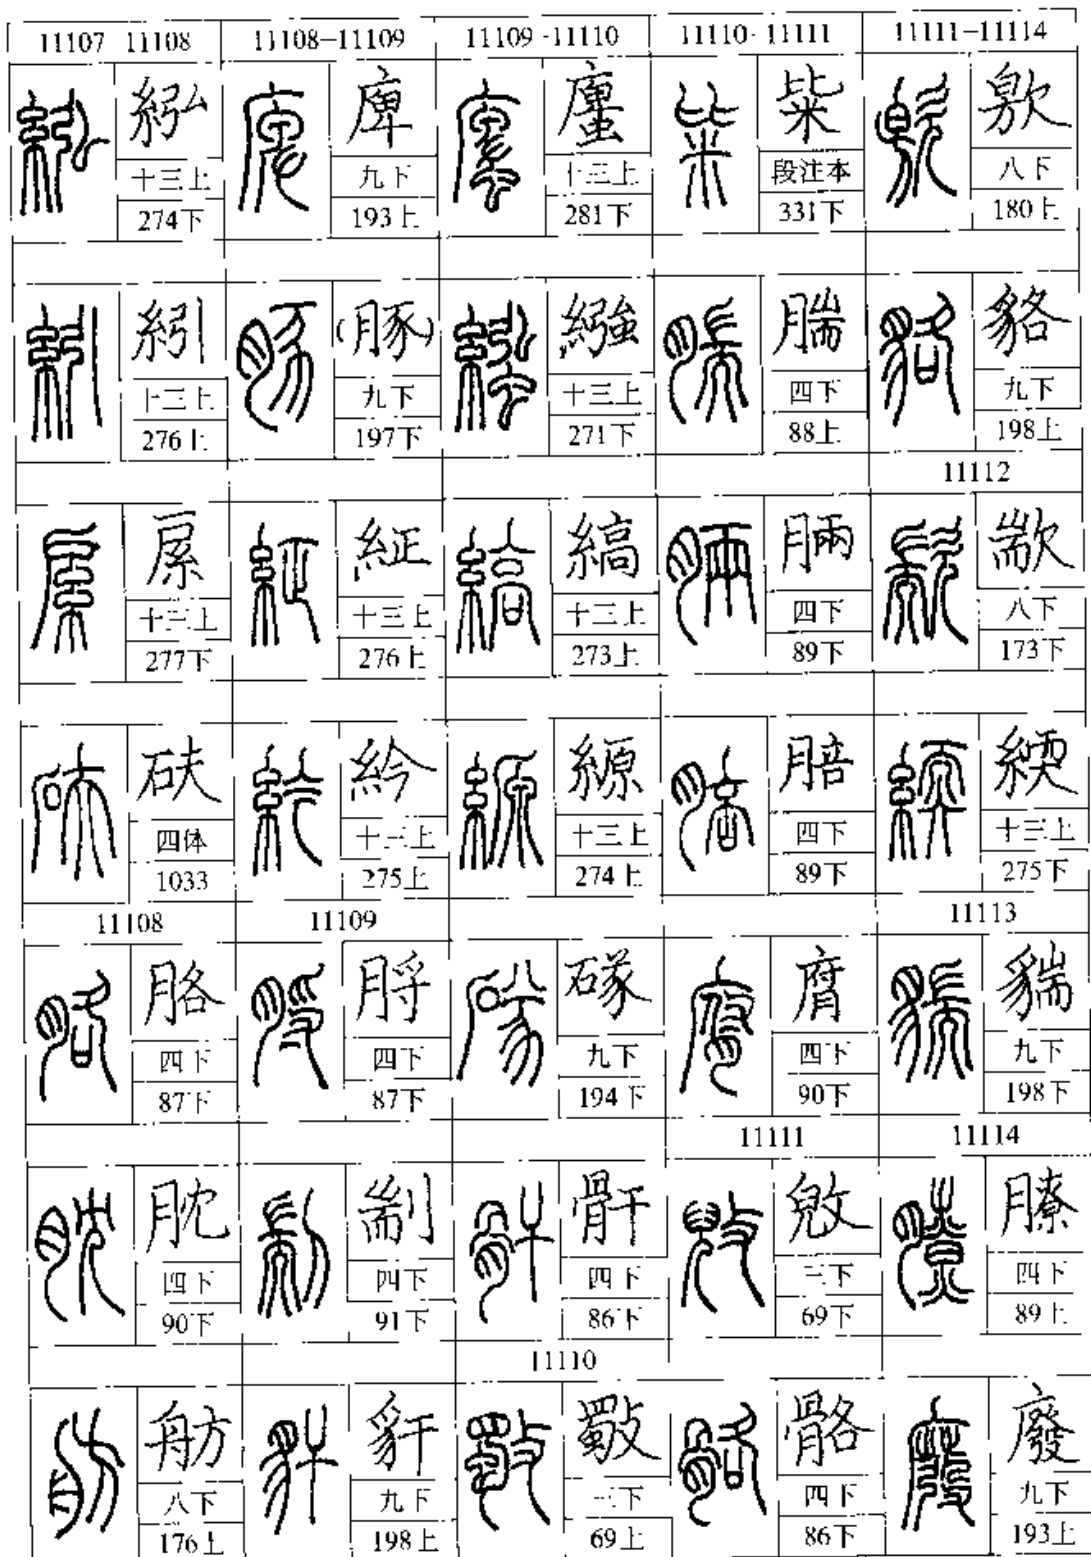 11107 11108
紭
十三上
274下
紖
十三上
276上
十三上
277下
砆
四体
1033
11108
胳
四下
87下
䏙
四下
90下
舫
八下
176上
11108–11109
庳
九下
193上
(豚)
九下
197下
䋊
十三上
276上
紟
十三上
275上
11109
脟
四下
87下
剬
四下
91下
豻
九下
198上
11109-11110
十三上
281下
繈
十三上
271下
縞
十三上
273上
縓
十三上
274上
九下
194下
骭
四下
86下
11110
斀
三下
69上
11110-11111
粊
段注本
331下
腨
四下
88上
脼
四下
89下
䏽
四下
89下
腐
四下
90下
11111
三下
69下
骼
四下
86下
11111–11114
八下
180上
貉
九下
198上
11112
歂
八下
173下
緛
十三上
275下
11113
貒
九下
198下
11114
膫
四下
89上
廢
九下
193上